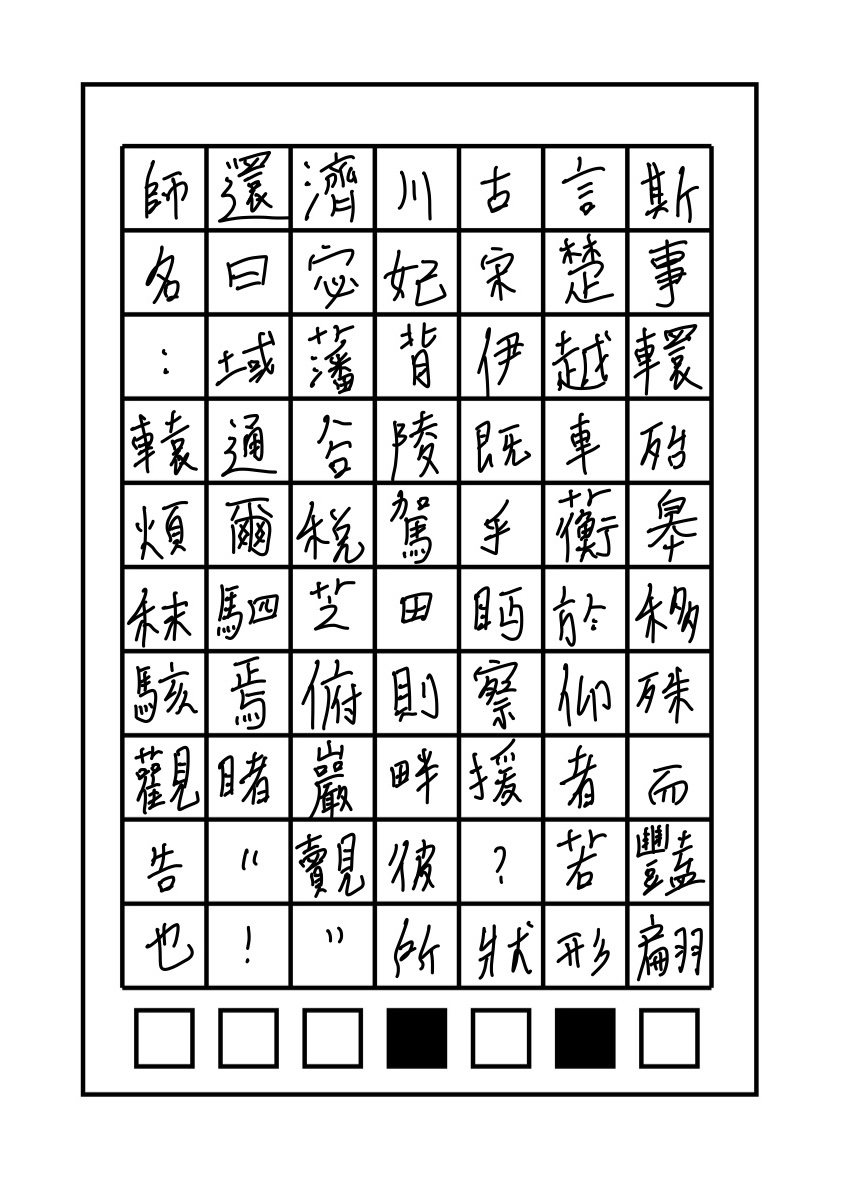 師還濟川古言斯
名曰宓妃宋楚事
：域藩背伊越轘
轅通谷陵既車殆
煩爾稅駕乎蘅皋
秣駟芝田眄於移
駭焉俯則察仰殊
觀睹巖畔援者而
告“覿彼？若豔
也！”所狀形翩